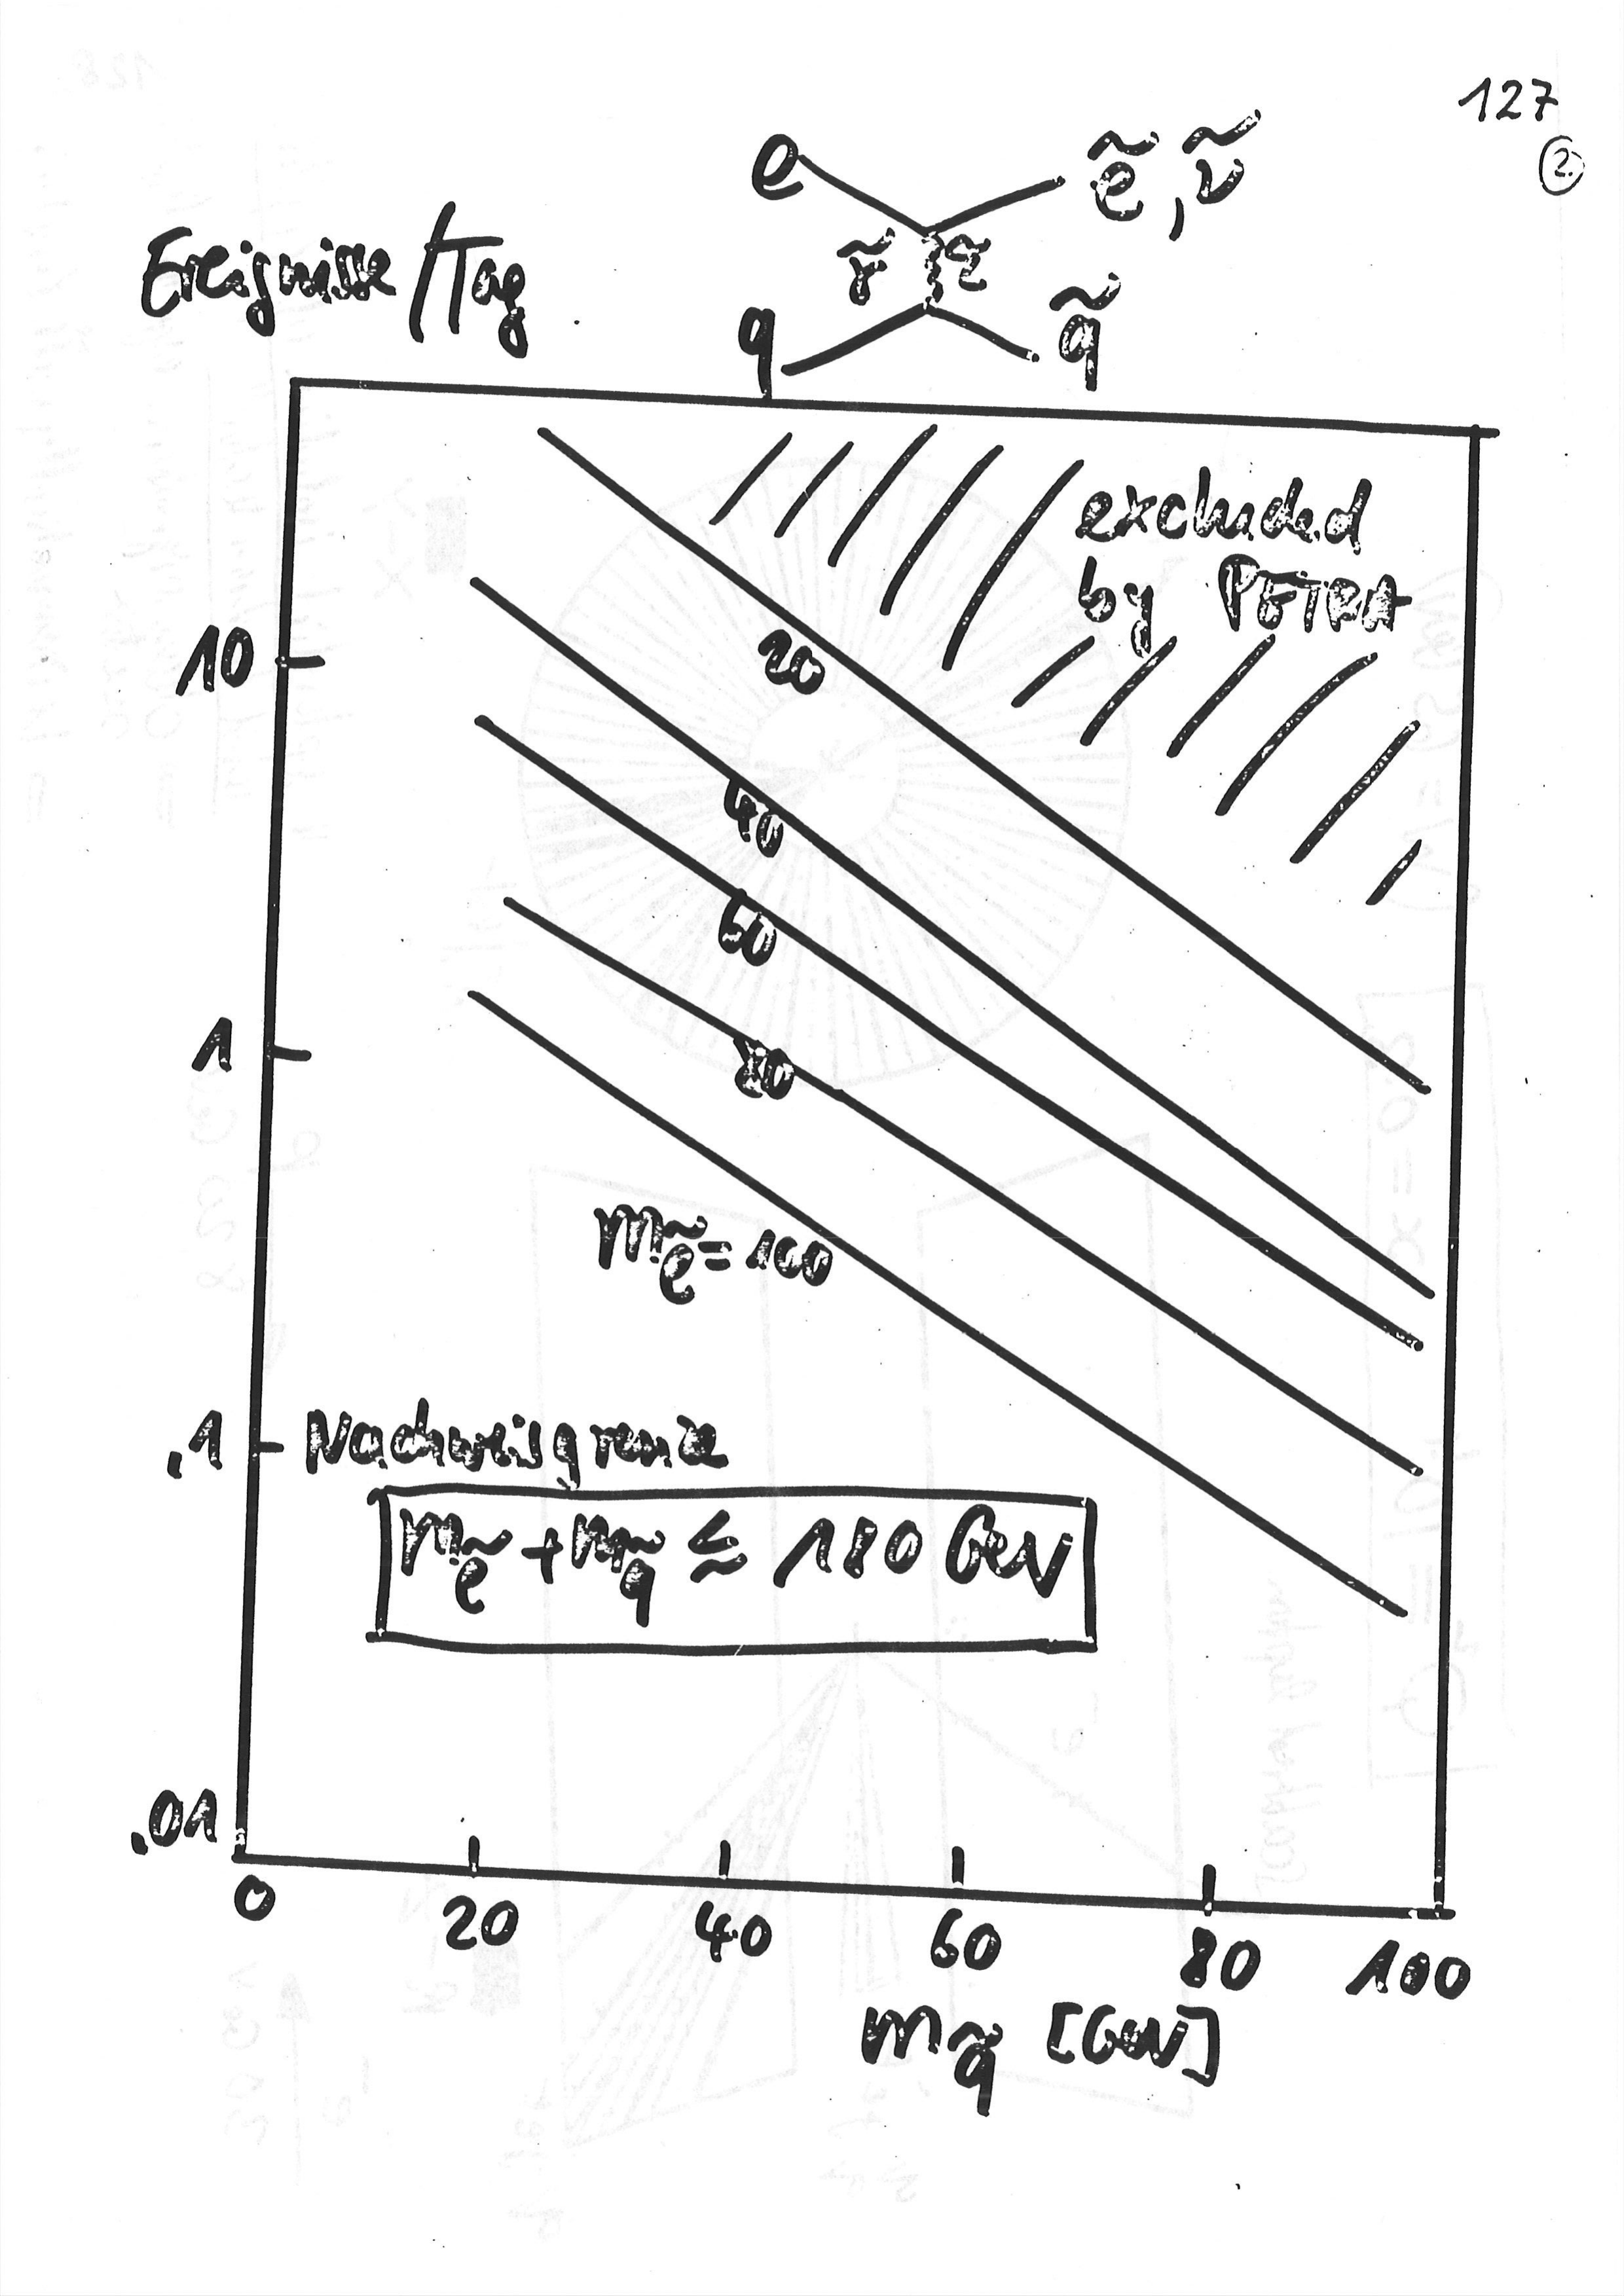 127
2
e ẽ, ν̃
γ̃ z̃
q q̃
Ereignisse/Tag
excluded
by PETRA
10
20
40
60
1
80
m_ẽ = 100
.1 Nachweisgrenze
m_ẽ + m_q̃ ≲ 180 GeV
.01
0 20 40 60 80 100
m_q̃ [GeV]